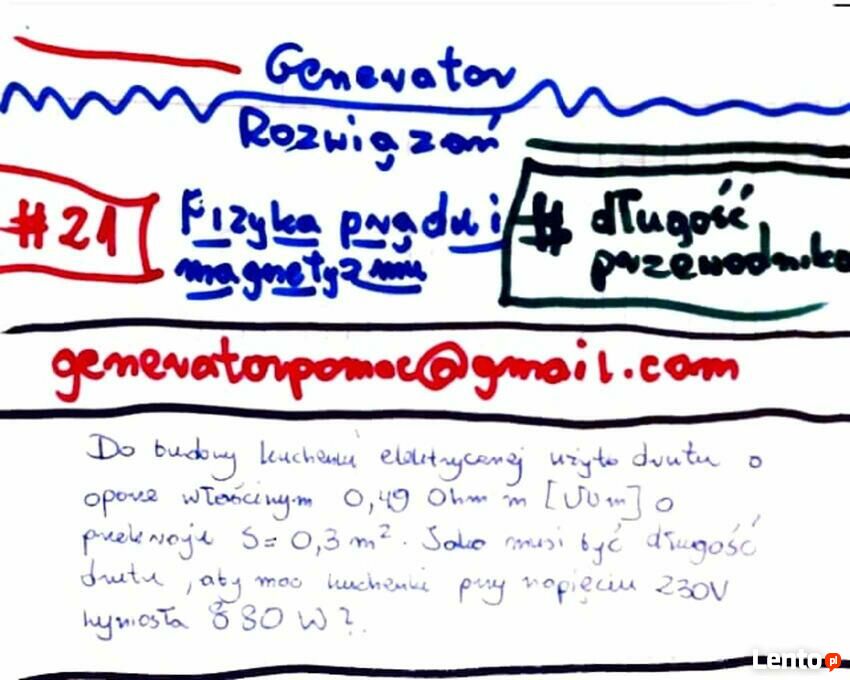 Generator
Rozwiązań
#21
Fizyka prądu i
magnetyzmu
# długość
przewodnika
generatorpomoc@gmail.com
Do budowy kuchenki elektrycznej użyto drutu o
oporze właściwym 0,49 Ohm m [ ] o
przekroju S = 0,3 m². Jaka musi być długość
drutu, aby moc kuchenki przy napięciu 230V
wyniosła 880 W?
Lento.pl